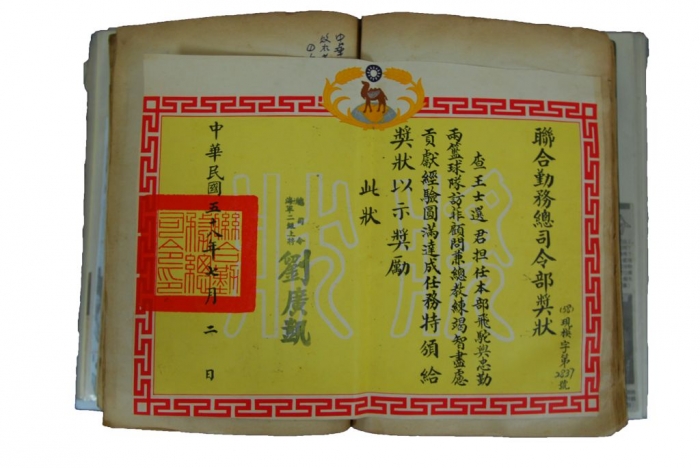 聯合勤務總司令部獎狀
字第
號
查王士選君担任本部飛駝與忠勤
兩籃球隊訪菲顧問兼總教練竭智盡慮
貢獻經驗圓滿達成任務特頒給
獎狀以示獎勵
此狀
總司令
海軍二級上將
劉廣凱
中華民國五十八年七月二日
聯合勤務總司令印
獎狀